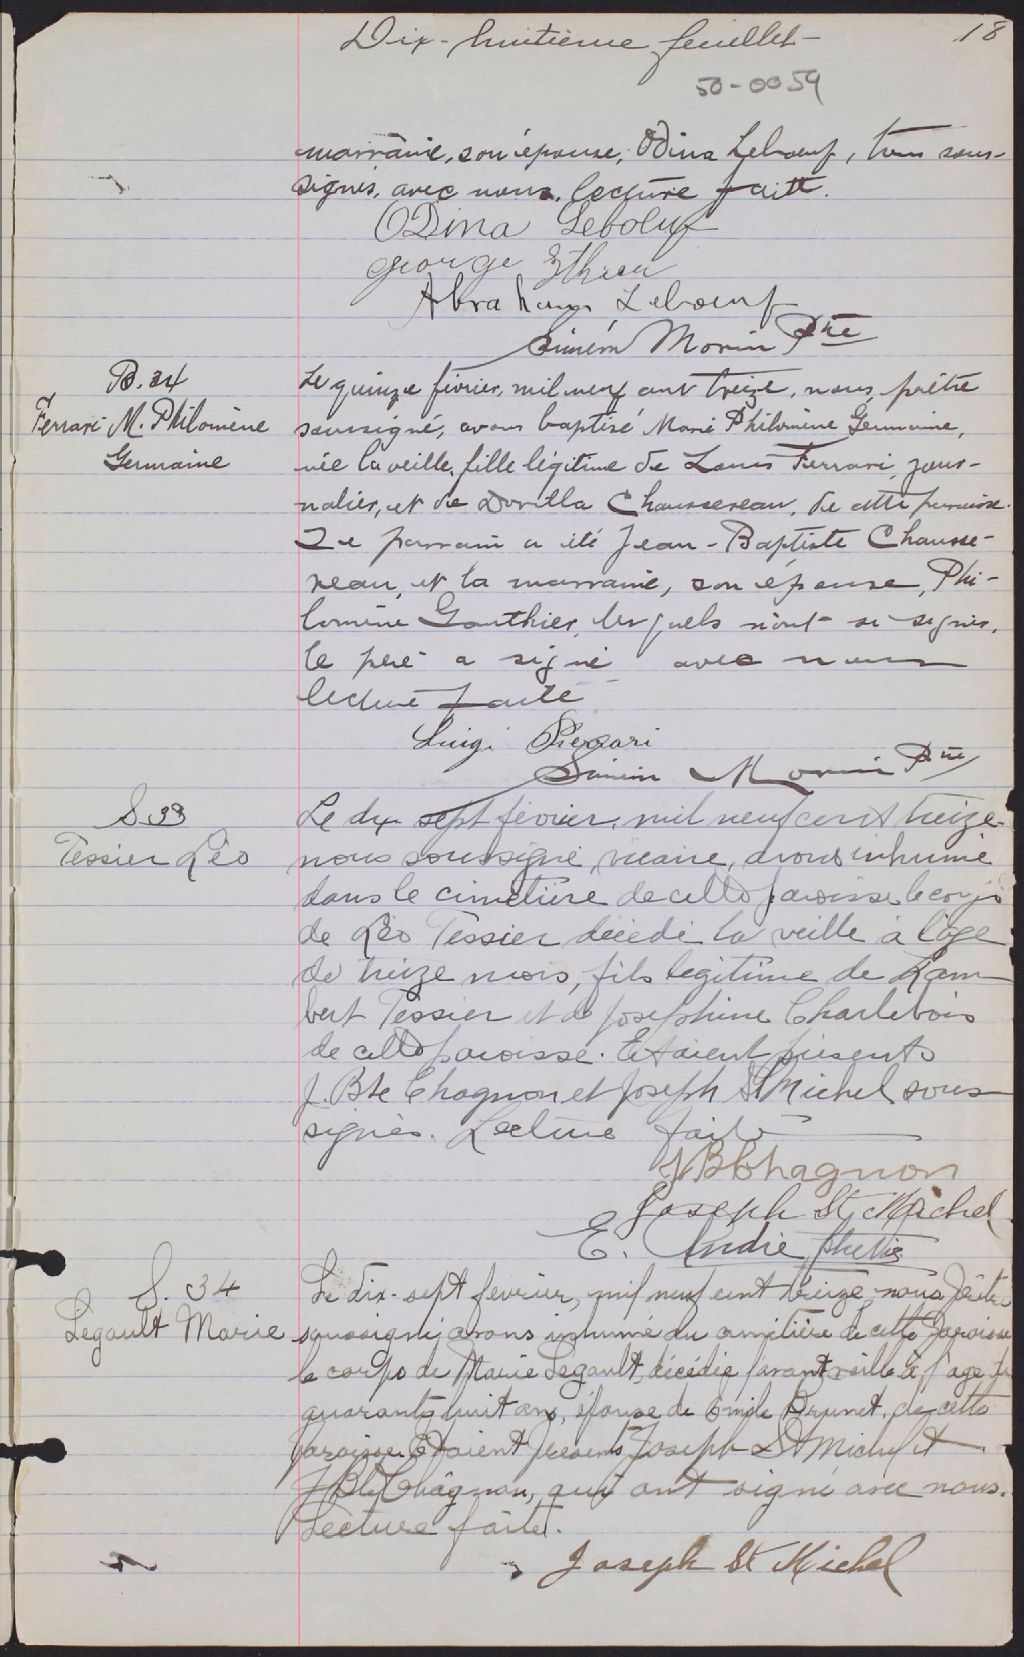 Dix-huitième feuillet-
18
50-0059
marraine, son épouse, Odina Leboeuf, tous sous-
signés, avec nous, lecture faite.
ODina Leboeuf
George
Abraham Leboeuf
Siméon Morin Ptre
B. 34
Ferrari M. Philomène
Germaine
Le quinze février, mil neuf cent treize, nous, prêtre
soussigné, avons baptisé Marie Philomène Germaine,
née la veille, fille légitime de Louis Ferrari, jour-
nalier, et de Dorilla Chaussereau, de cette paroisse.
Le parrain a été Jean-Baptiste Chausse-
reau, et la marraine, son épouse, Phi-
lomène Gauthier, lesquels n'ont su signer,
le père a signé avec nous
lecture faite
Luigi
Siméon Morin Ptre
S. 33
Tessier Léo
Le dix sept février, mil neuf cent treize
nous soussigné, vicaire, avons inhumé
dans le cimetière de cette paroisse le corps
de Léo Tessier décédé la veille à l'âge
de treize mois, fils légitime de Lam-
bert Tessier et de Josephine Charlebois
de cette paroisse. Etaient présents
J. Bte Chagnon et Joseph St Michel sous-
signés. Lecture faite
J B Chagnon
Joseph St Michel
E. André ptre
S. 34
Legault Marie
Le dix-sept février, mil neuf cent treize, nous prêtre
soussigné, avons inhumé au cimetière de cette paroisse
le corps de Marie Legault, décédée l'avant veille à l'age de
quarante huit ans, épouse de Emile Brunet, de cette
paroisse. Etaient présents Joseph St Michel et
J Bte Chagnon, qui ont signé avec nous.
Lecture faite.
Joseph St Michel